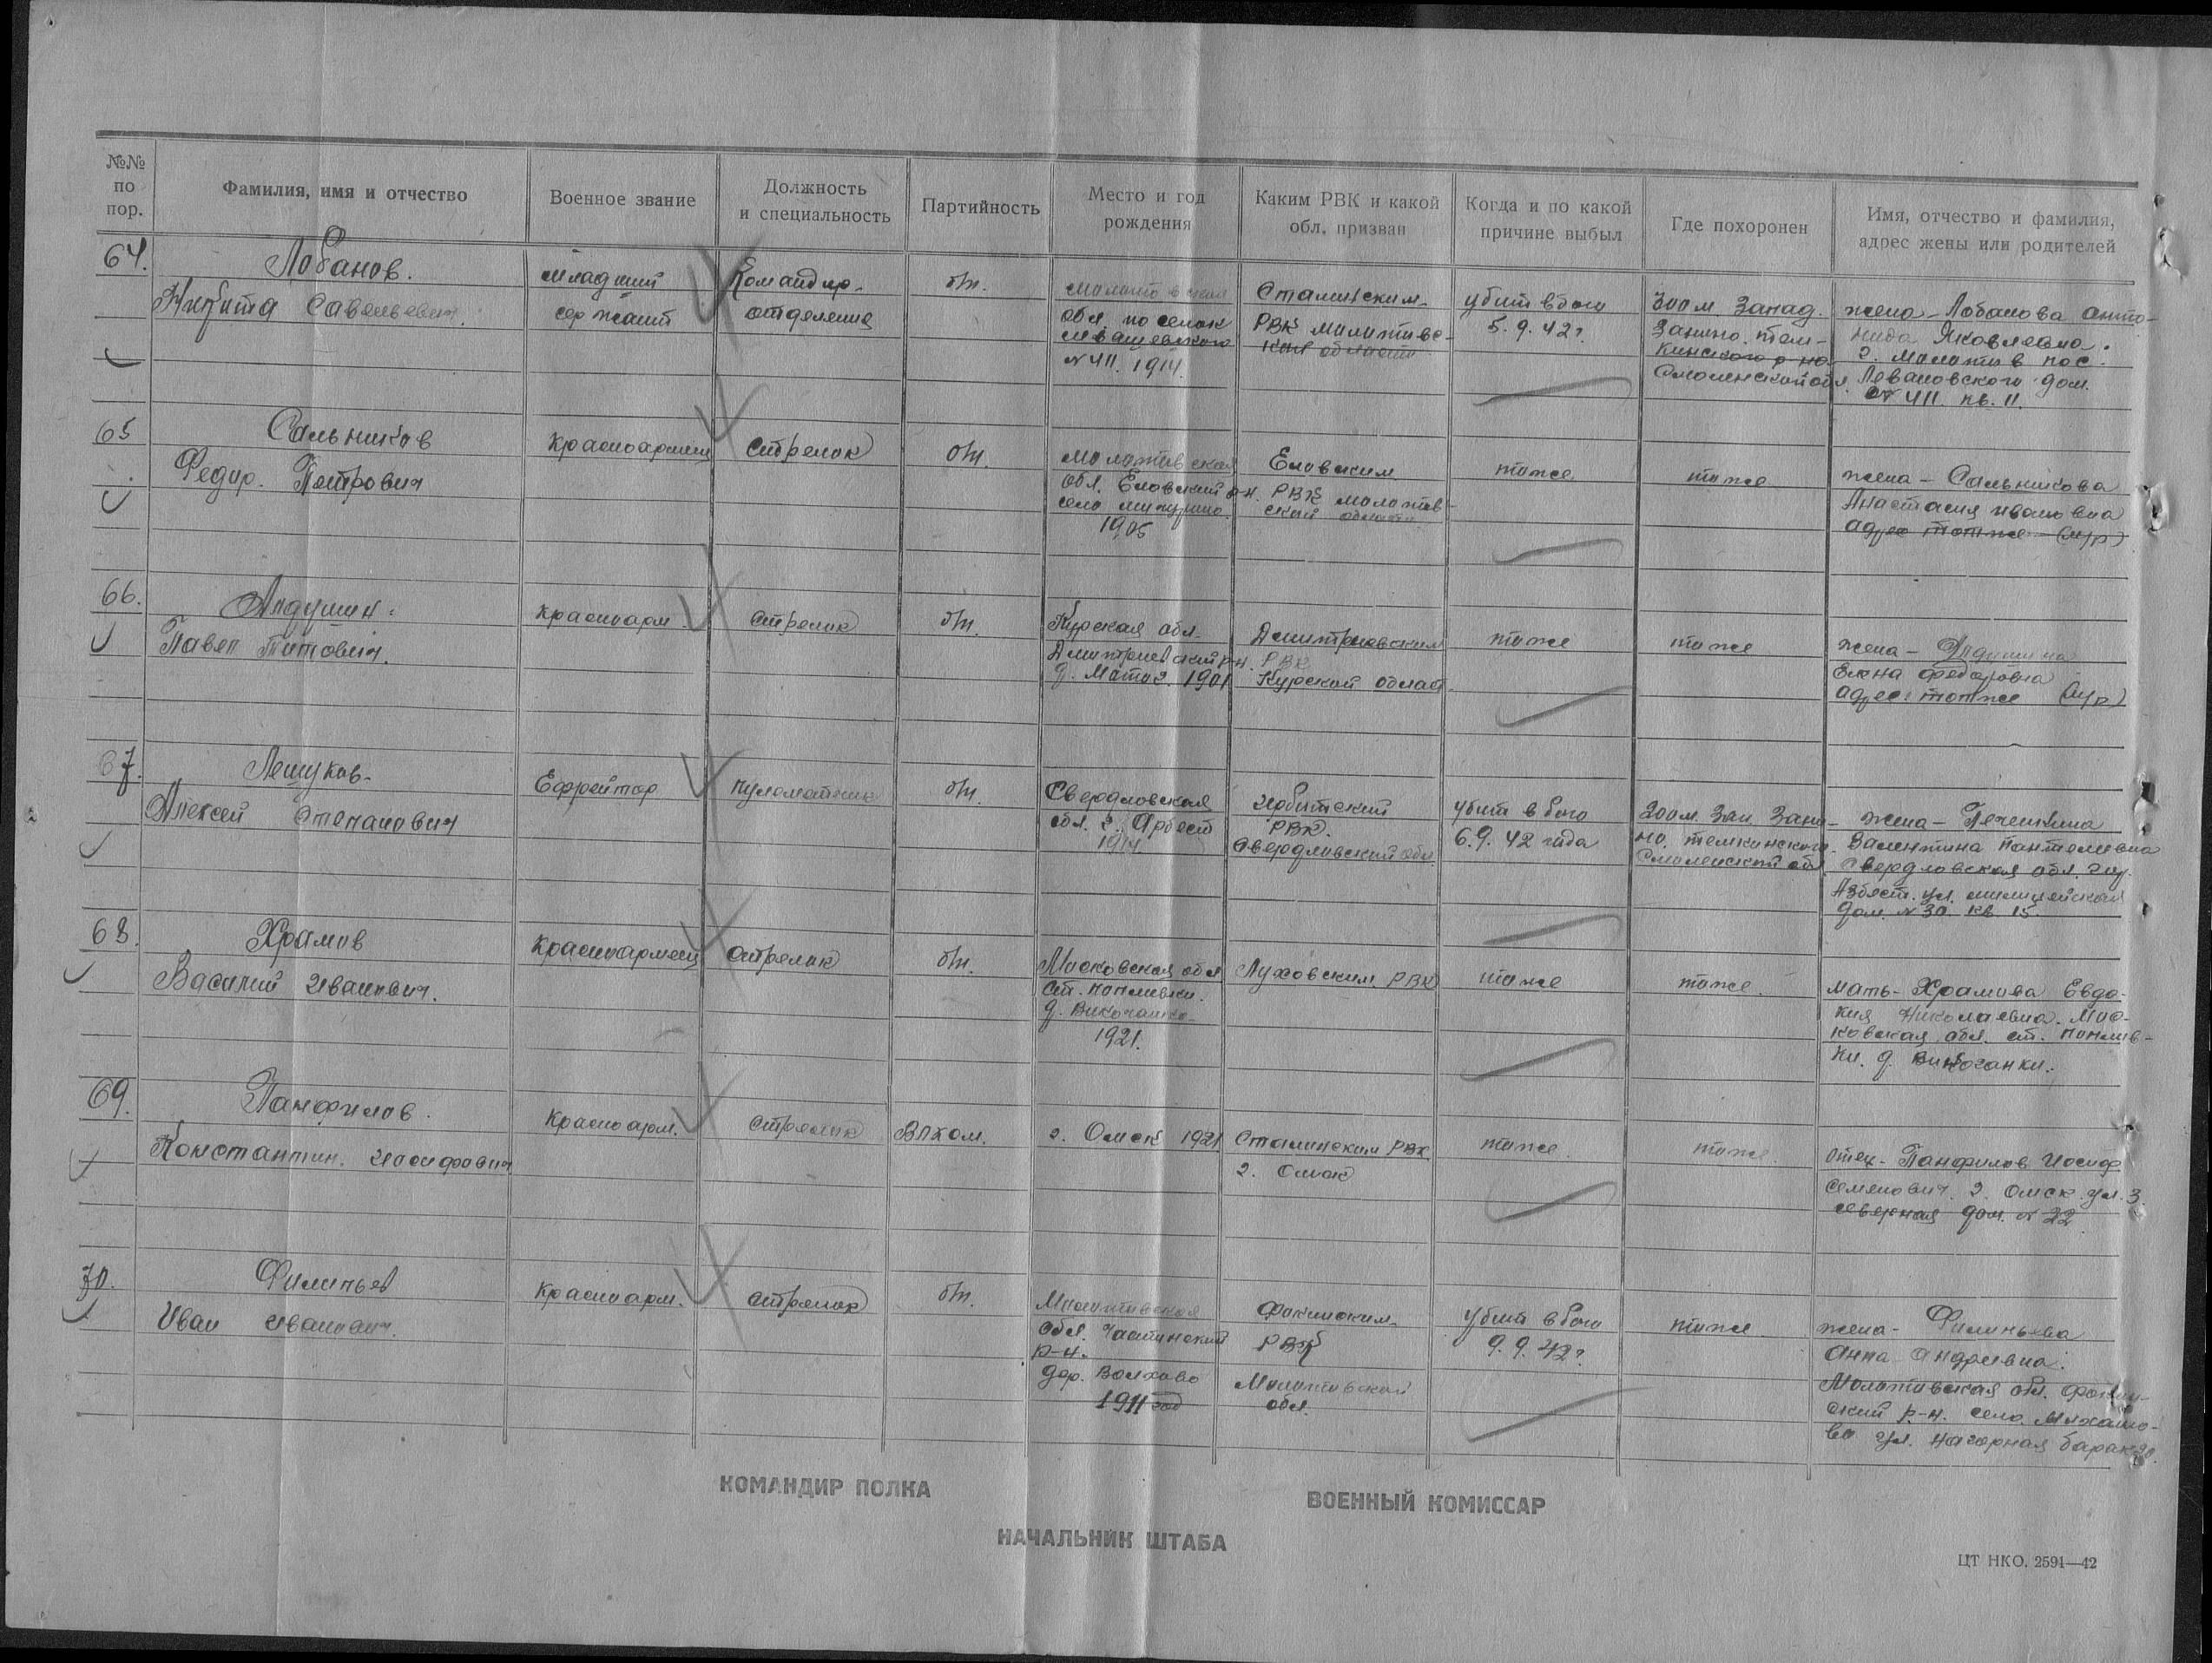 №№ по пор.
Фамилия, имя и отчество
Военное звание
Должность и специальность
Партийность
Место и год рождения
Каким РВК и какой обл. призван
Когда и по какой причине выбыл
Где похоронен
Имя, отчество и фамилия, адрес жены или родителей
64.
Лобанов.
Никита Савельевич.
младший
сержант
Командир
отделения
б/п.
обл. поселок
№ 411. 1914.
Сталинским
РВК молотов-
ской области
убит в бою
5.9.42 г.
300 м. запад.
Занино. тем-
кинского р-на
Смоленской обл.
жена - Лобанова Анто-
нида Яковлевна.
г. Молотов пос.
Левановского дом.
№ 411. кв. 11.
65
Сальников
Федор. Петрович
красноармеец
стрелок
б/п.
молотовская
обл. Еловский р-н.
село
1905
Еловским
РВК молотов-
ской области
тоже
тоже
жена - Сальникова
Анастасия ивановна
адрес тотже (м/р)
66.
Алдушин.
Павел Титович.
красноарм.
стрелок
б/п.
Курская обл.
Дмитриевский р-н.
1901
Дмитриевским
РВК
Курской област.
тоже
тоже
жена - Алдушина
Елена федоровна
адрес: тотже (м/р)
67.
Лешуков.
Алексей степанович
Ефрейтор
пулеметчик
б/п.
Свердловская
обл. г.
1914
РВК.
свердловский обл.
убит в бою
6.9.42 года
200 м. Зап. Зани-
но. темкинского.
Смоленской обл.
жена -
Валентина Пантелевна
свердловская обл. гор.
Азбест. ул. милицейская
дом. № 30 кв 15.
68.
Храмов
Василий иванович.
красноармеец
стрелок
б/п.
Московская обл
ст.
д.
1921.
Луховским РВК
тоже
тоже.
мать - Храмова Евдо-
кия Николаевна. Мос-
ковская обл. ст.
ки. д.
69.
Панфилов.
Константин. иосифович
красноарм.
стрелок
Влком.
г. Омск 1921
Сталинским РВК.
г. Омск
тоже.
тоже.
отец - Панфилов Иосиф
семенович. г. Омск. ул. 3.
северная дом. № 22
70.
Филипьев
Иван иванович.
красноарм.
стрелок
б/п.
Молотовская
обл. Частинский
р-н.
дер. Волхово
1911 год
Фокинским.
РВК
Молотовской
обл.
убит в бою
9.9.42 г.
тоже
жена - Филипьева
анна андреевна.
Молотовская обл. Фокин-
ский р-н. село.
ул. нагорная барак
КОМАНДИР ПОЛКА
ВОЕННЫЙ КОМИССАР
НАЧАЛЬНИК ШТАБА
ЦТ НКО. 2591—42